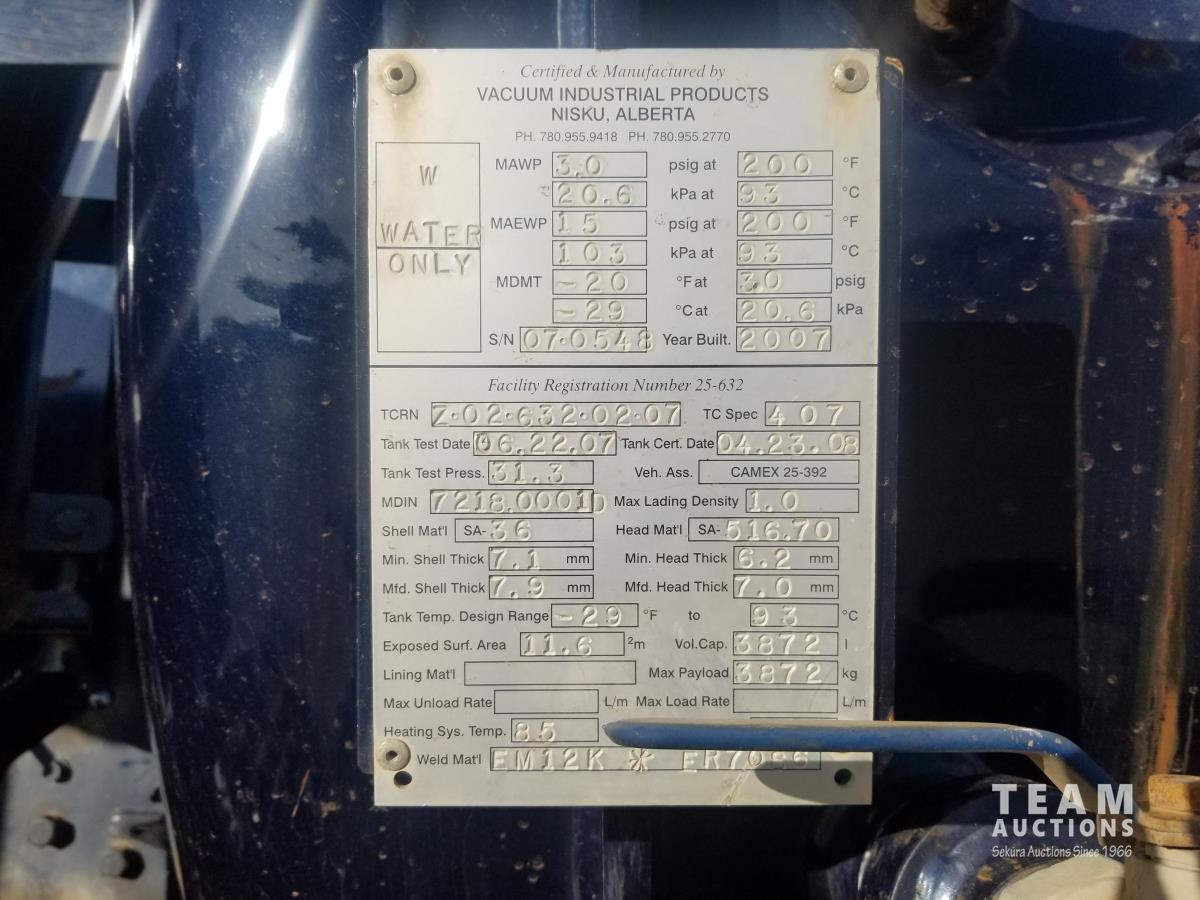 Certified & Manufactured by
VACUUM INDUSTRIAL PRODUCTS
NISKU, ALBERTA
PH. 780.955.9418 PH. 780.955.2770
W
WATER
ONLY
MAWP 3.0 psig at 200 °F
20.6 kPa at 93 °C
MAEWP 15 psig at 200 °F
103 kPa at 93 °C
MDMT -20 °F at 3.0 psig
-29 °C at 20.6 kPa
S/N 07-0548 Year Built. 2007
Facility Registration Number 25-632
TCRN Z-02-632-02-07 TC Spec 407
Tank Test Date 06.22.07 Tank Cert. Date 04.23.08
Tank Test Press. 31.3 Veh. Ass. CAMEX 25-392
MDIN 7218.0001D Max Lading Density 1.0
Shell Mat'l SA-36 Head Mat'l SA-516.70
Min. Shell Thick 7.1 mm Min. Head Thick 6.2 mm
Mfd. Shell Thick 7.9 mm Mfd. Head Thick 7.0 mm
Tank Temp. Design Range -29 °F to 93 °C
Exposed Surf. Area 11.6 ²m Vol.Cap. 3872 l
Lining Mat'l Max Payload 3872 kg
Max Unload Rate L/m Max Load Rate L/m
Heating Sys. Temp. 85
Weld Mat'l EM12K * ER70S6
TEAM
AUCTIONS
Sekura Auctions Since 1966